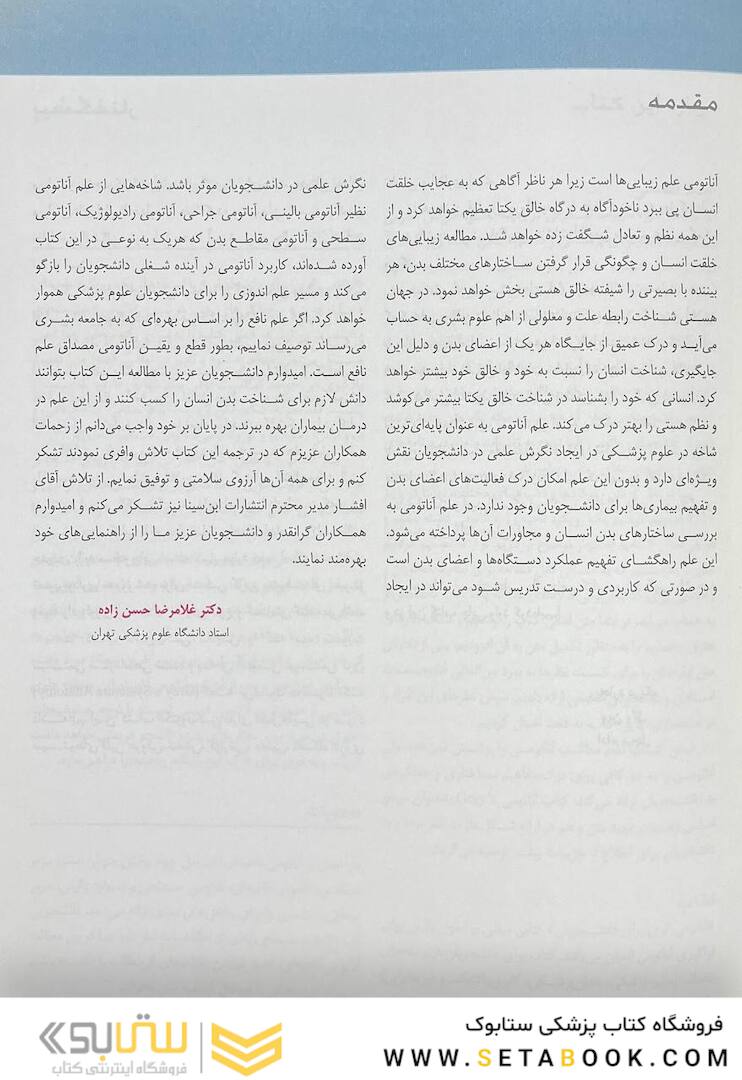 مقدمه
آناتومی علم زیبایی‌ها است زیرا هر ناظر آگاهی که به عجایب خلقت
انسان پی ببرد ناخودآگاه به درگاه خالق یکتا تعظیم خواهد کرد و از
این همه نظم و تعادل شگفت زده خواهد شد. مطالعه زیبایی‌های
خلقت انسان و چگونگی قرار گرفتن ساختارهای مختلف بدن، هر
بیننده با بصیرتی را شیفته خالق هستی بخش خواهد نمود. در جهان
هستی شناخت رابطه علت و معلولی از اهم علوم بشری به حساب
می‌آید و درک عمیق از جایگاه هر یک از اعضای بدن و دلیل این
جایگیری، شناخت انسان را نسبت به خود و خالق خود بیشتر خواهد
کرد. انسانی که خود را بشناسد در شناخت خالق یکتا بیشتر می‌کوشد
و نظم هستی را بهتر درک می‌کند. علم آناتومی به عنوان پایه‌ای‌ترین
شاخه در علوم پزشکی در ایجاد نگرش علمی در دانشجویان نقش
ویژه‌ای دارد و بدون این علم امکان درک فعالیت‌های اعضای بدن
و تفهیم بیماری‌ها برای دانشجویان وجود ندارد. در علم آناتومی به
بررسی ساختارهای بدن انسان و مجاورات آن‌ها پرداخته می‌شود.
این علم راهگشای تفهیم عملکرد دستگاه‌ها و اعضای بدن است
و در صورتی که کاربردی و درست تدریس شود می‌تواند در ایجاد
نگرش علمی در دانشجویان موثر باشد. شاخه‌هایی از علم آناتومی
نظیر آناتومی بالینی، آناتومی جراحی، آناتومی رادیولوژیک، آناتومی
سطحی و آناتومی مقاطع بدن که هریک به نوعی در این کتاب
آورده شده‌اند، کاربرد آناتومی در آینده شغلی دانشجویان را بازگو
می‌کند و مسیر علم اندوزی را برای دانشجویان علوم پزشکی هموار
خواهد کرد. اگر علم نافع را بر اساس بهره‌ای که به جامعه بشری
می‌رساند توصیف نماییم، بطور قطع و یقین آناتومی مصداق علم
نافع است. امیدوارم دانشجویان عزیز با مطالعه این کتاب بتوانند
دانش لازم برای شناخت بدن انسان را کسب کنند و از این علم در
درمان بیماران بهره ببرند. در پایان بر خود واجب می‌دانم از زحمات
همکاران عزیزم که در ترجمه این کتاب تلاش وافری نمودند تشکر
کنم و برای همه آن‌ها آرزوی سلامتی و توفیق نمایم. از تلاش آقای
افشار مدیر محترم انتشارات ابن‌سینا نیز تشکر می‌کنم و امیدوارم
همکاران گرانقدر و دانشجویان عزیز ما را از راهنمایی‌های خود
بهره‌مند نمایند.
دکتر غلامرضا حسن زاده
استاد دانشگاه علوم پزشکی تهران
فروشگاه کتاب پزشکی ستابوک
WWW.SETABOOK.COM
ستابوک
فروشگاه اینترنتی کتاب